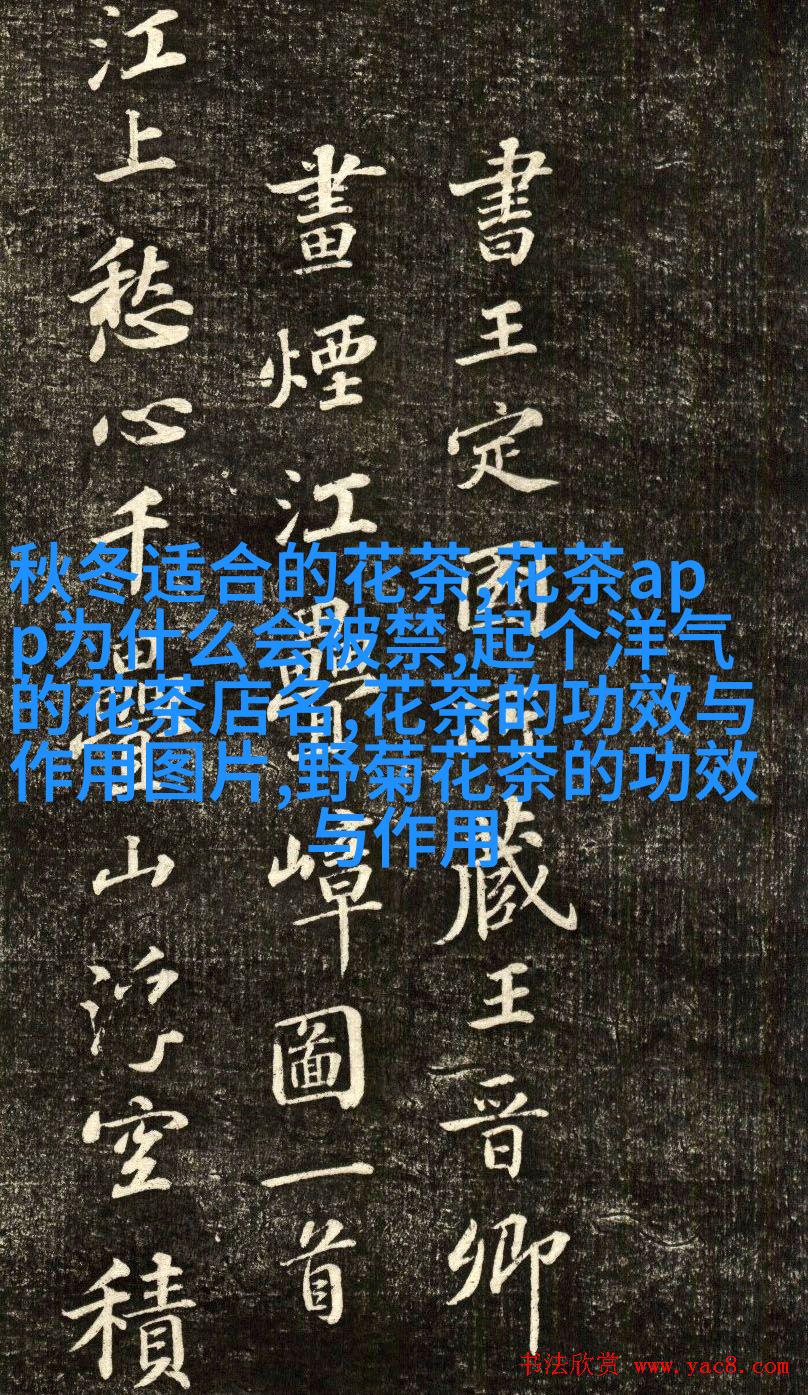 書王定國所藏王晉卿
畫煙江疊嶂圖一首
江上愁心千疊山浮空積
秋冬适合的花茶,花茶ap
p为什么会被禁,起个洋气
的花茶店名,花茶的功效与
作用图片,野菊花茶的功效
与作用
书法欣赏 www.yac8.com